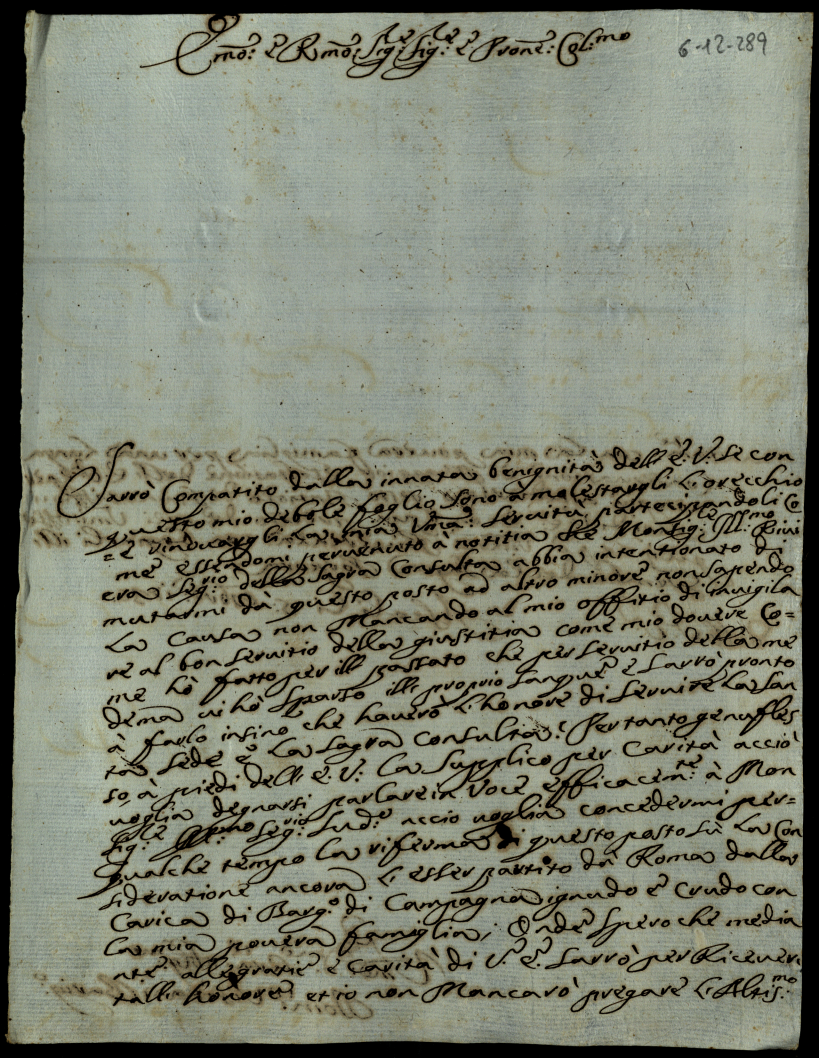 Emo: e Rmo: Sig:re Sig:re e Prone: Col:mo
6-12-289
Sarrò Compatito dalla innata benignità dell'E. V. se con
questo mio debole foglio sono a molestargli l'orecchio
è rinovargli la mia Uma: Servitù partecipandoli Co
me essendomi pervenuto à notitia che Monsig:re Ill:mo Rivi
era Seg:rio della Sagra Consulta abbia intentionato di
mutarmi dà questo posto ad altro minore non sapendo
la Causa non Mancando al mio offitio di invigila
re al bon servitio della giustitia come mio dovere Co=
me hò fatto per ill passato che per servitio della me
dema vi hò Sparso ill proprio sangue e sarrò pronto
à farlo insino che haverò l'honore di servire la San
ta Sede è la Sagra Consulta: Per tanto genufles
so, à piedi dell'E. V: la supplico per Carità acciò
voglia degnarsi parlare in Voce efficacem:te à Mon
sig:re Ill:mo Seg:rio Sud:o acciò voglia concedermi per=
qualche tempo la riferma di questo posto sù la Con
sideratione ancora l'esser partito dà Roma dalla
Carica di Barg:o di Campagna ignudo e Crudo con
la mia povera famiglia; Onde spero che media
nte alle gratie e carità di V. E. Sarrò per Ricever
talli honore et io non Mancarò pregare l'Altis:mo